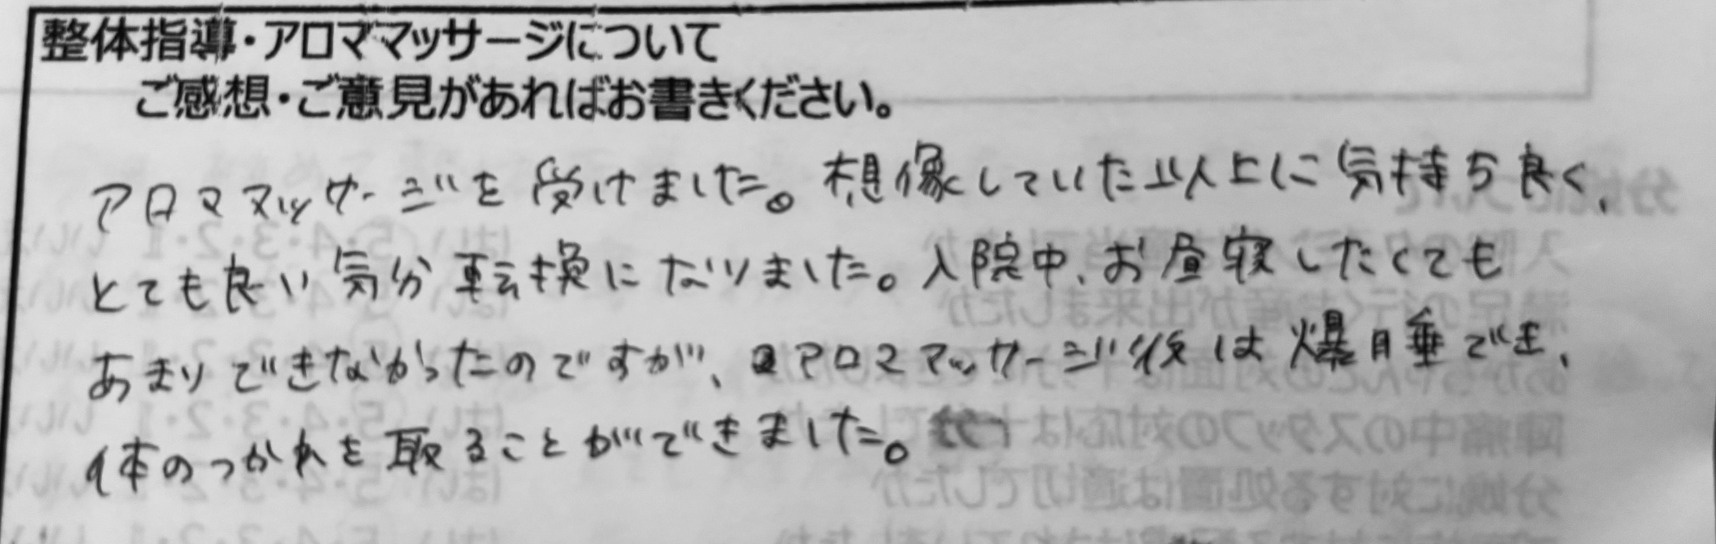 整体指導・アロママッサージについて
ご感想・ご意見があればお書きください。
アロママッサージを受けました。想像していた以上に気持ち良く、
とても良い気分転換になりました。入院中、お昼寝したくても
あまりできなかったのですが、アロママッサージ後は爆睡でき、
体のつかれを取ることができました。